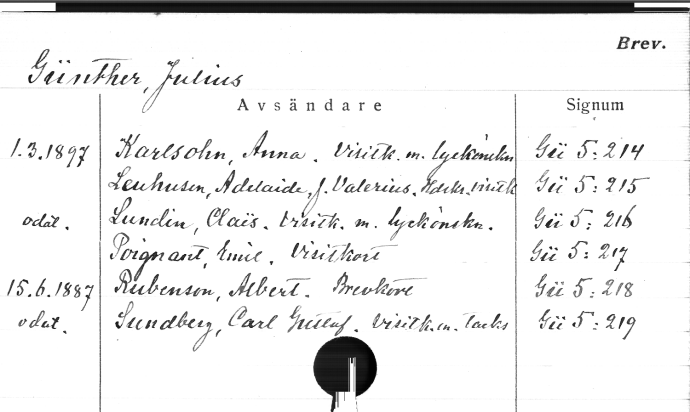 Brev.
Günther, Julius
Avsändare Signum
1.3.1897 Karlsohn, Anna. Visitk. m. lyckönskn Gü 5:214
Leuhusen, Adelaide, f. Valerius. Hdskr. visitk Gü 5:215
odat. Lundin, Claës. Visitk. m. lyckönskn. Gü 5:216
Poignant, Emil. Visitkort Gü 5:217
15.6.1887 Rubenson, Albert. Brevkort Gü 5:218
odat. Sundberg, Carl Gustaf. Visitk. m. tacks Gü 5:219